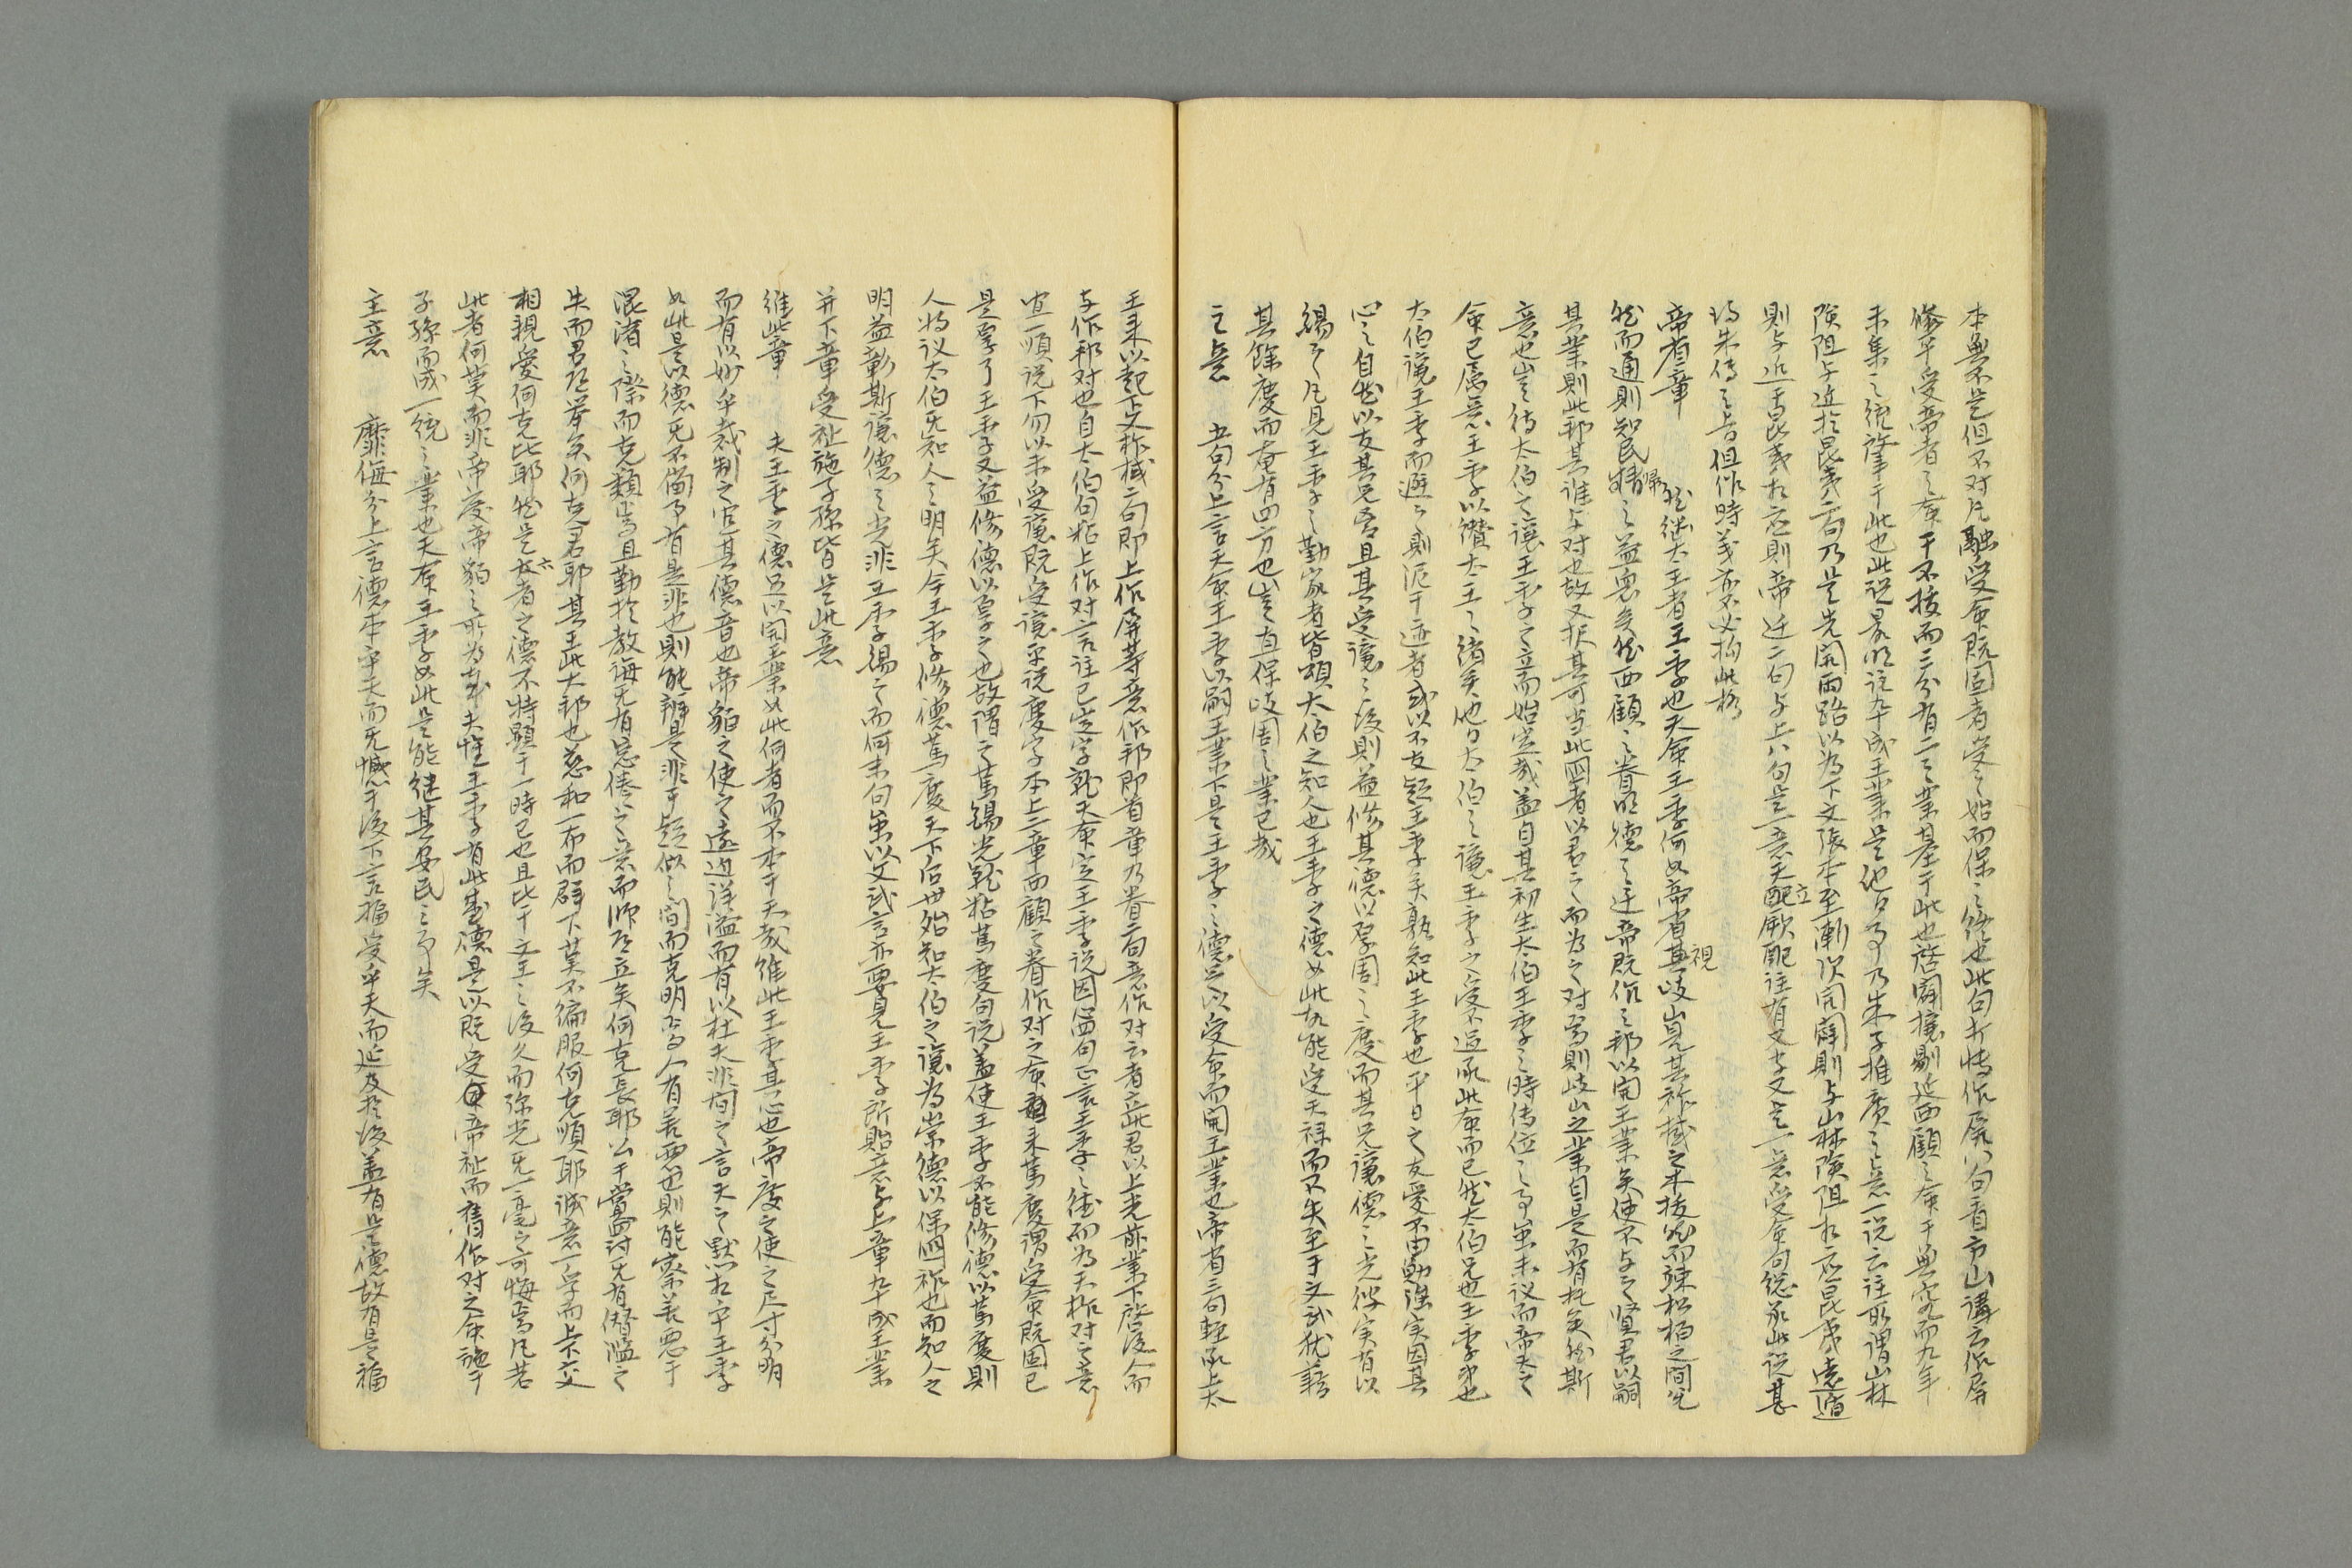 本無不是但不对凡融受命既固者受之始而保之終也此句打轉作屏八句看方山講云作屏
修平受帝者之命于不拔而三分有二之業基于此也啓闢攘剔延西顧之命于無窮而九年
未集之統肇于此也此説最明注九年成王業是他日事乃朱子推廣之意一説云注所謂山林
険阻与近於昆夷二句乃是先開両路以為下文張本至漸次開闢則与山林険阻相応昆夷遠遁
則与近于昆夷相応則帝迁二句与上八句是一意天立厥配注有又字又是一意受命句総承此説甚
得朱傳之旨但作時義亦不必拘此格
帝省章　然継太王者王季也天命王季何如帝省視其岐山見其柞棫之木拔然而竦松柏之間兌
然而通則知民帰之益衆矣然西顧之眷明德之迁帝既作之邦以開王業矣使不与之賢君以嗣
其業則此邦其誰与对也故又択其可当此国者以君之而為之对焉則岐山之業自是而有托矣然斯
意也豈待太伯之讓王季之立而始定哉盖自其初生太伯王季之時傳位之事虽未议而帝天之
命已属意王季以纘太王之緒矣他日太伯之讓王季之受不過承此命而已然太伯兄也王季弟也
太伯讓王季而避之則泥于迹者或以不友疑王季矣孰知此王季也平日之友愛不由勉强实因其
心之自然以友其兄焉且其受讓之後則益修其德以厚周之慶而其兄讓德之光伊实有以
錫之凡見王季之勤家者皆頌太伯之知人也王季之德如此故能受天禄而不失至于文武犹藉
其餘慶而奄有四方也豈直保岐周之業已哉
主意　五句分上言天命王季以嗣王業下是王季之德足以受命而開王業也帝省三句輕承上太
王来以起下文柞棫二句即上作屏等意作邦即首章乃眷二句意作对云者立此君以上光前業下啓後人而
与作邦对也自太伯句粘上作对言注已定字就天命定王季说因心句正言王季之德而為天作对之意
宜一順说下勿以未受讓既受讓平说慶字本上二章西顧之眷作对之命来篤慶謂受命既固已
是厚了王季又益修德以厚之也故謂之篤錫光就粘篤慶句说盖使王季不能修德以篤慶則
人将议太伯无知人之明矣今王季修德篤慶天下后世始知太伯之讓為崇德以保周祚也而知人之
明益彰斯讓德之光非王季錫之而何末句虽以文武言亦要見王季所貽意与上章九年成王業
并下章受祉施子孫皆是此意
維此章　夫王季之德足以開王業如此何者而不本于天哉維此王季其心也帝度之使之尺寸分明
而有以妙乎裁制之宜其德音也帝貊之使之遠近洋溢而有以杜夫非間之言天之默相乎王季
如此是以德无不備事有是非也則能辨是非于疑似之間而克明焉人有善悪也則能察善悪于
混淆之際而克類焉且勤於教誨无有怠倦之意而師道立矣何克長耶公于賞罰无有僭濫之
失而君道举矣何克君耶其王此大邦也慈和一布而群下莫不徧服何克順耶誠意一孚而上下交
相親愛何克比耶然是六者之德不特顯于一時已也且比于文王之後久而弥光无一毫之可悔焉凡若
此者何莫而非帝度帝貊之所為哉夫惟王季有此盛德是以既受帝祉而舊作对之命施于
子孫而成一統之業也天命王季如此是能継其安民之事矣
主意　靡悔分上言德本乎天而无憾于後下言福受乎天而延及於後盖有是德故有是福